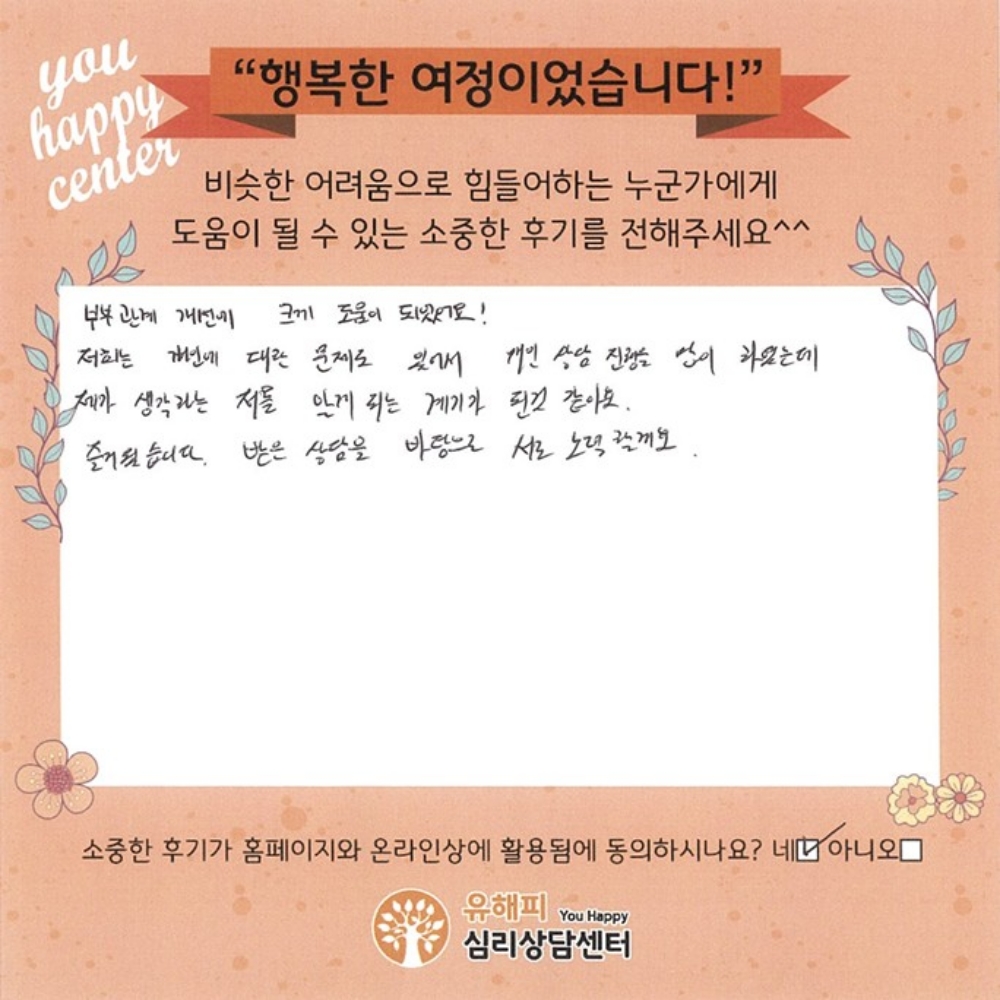 you
happy
center
“행복한 여정이었습니다!”
비슷한 어려움으로 힘들어하는 누군가에게
도움이 될 수 있는 소중한 후기를 전해주세요^^
부부관계 개선에 크게 도움이 되었어요!
저희는 개인에 대한 문제도 있어서 개인 상담 진행을 많이 하였는데
제가 생각하는 저를 알게 되는 계기가 된것 같아요.
즐거웠습니다. 받은 상담을 바탕으로 서로 노력할게요.
소중한 후기가 홈페이지와 온라인상에 활용됨에 동의하시나요? 네 아니오
유해피 You Happy
심리상담센터